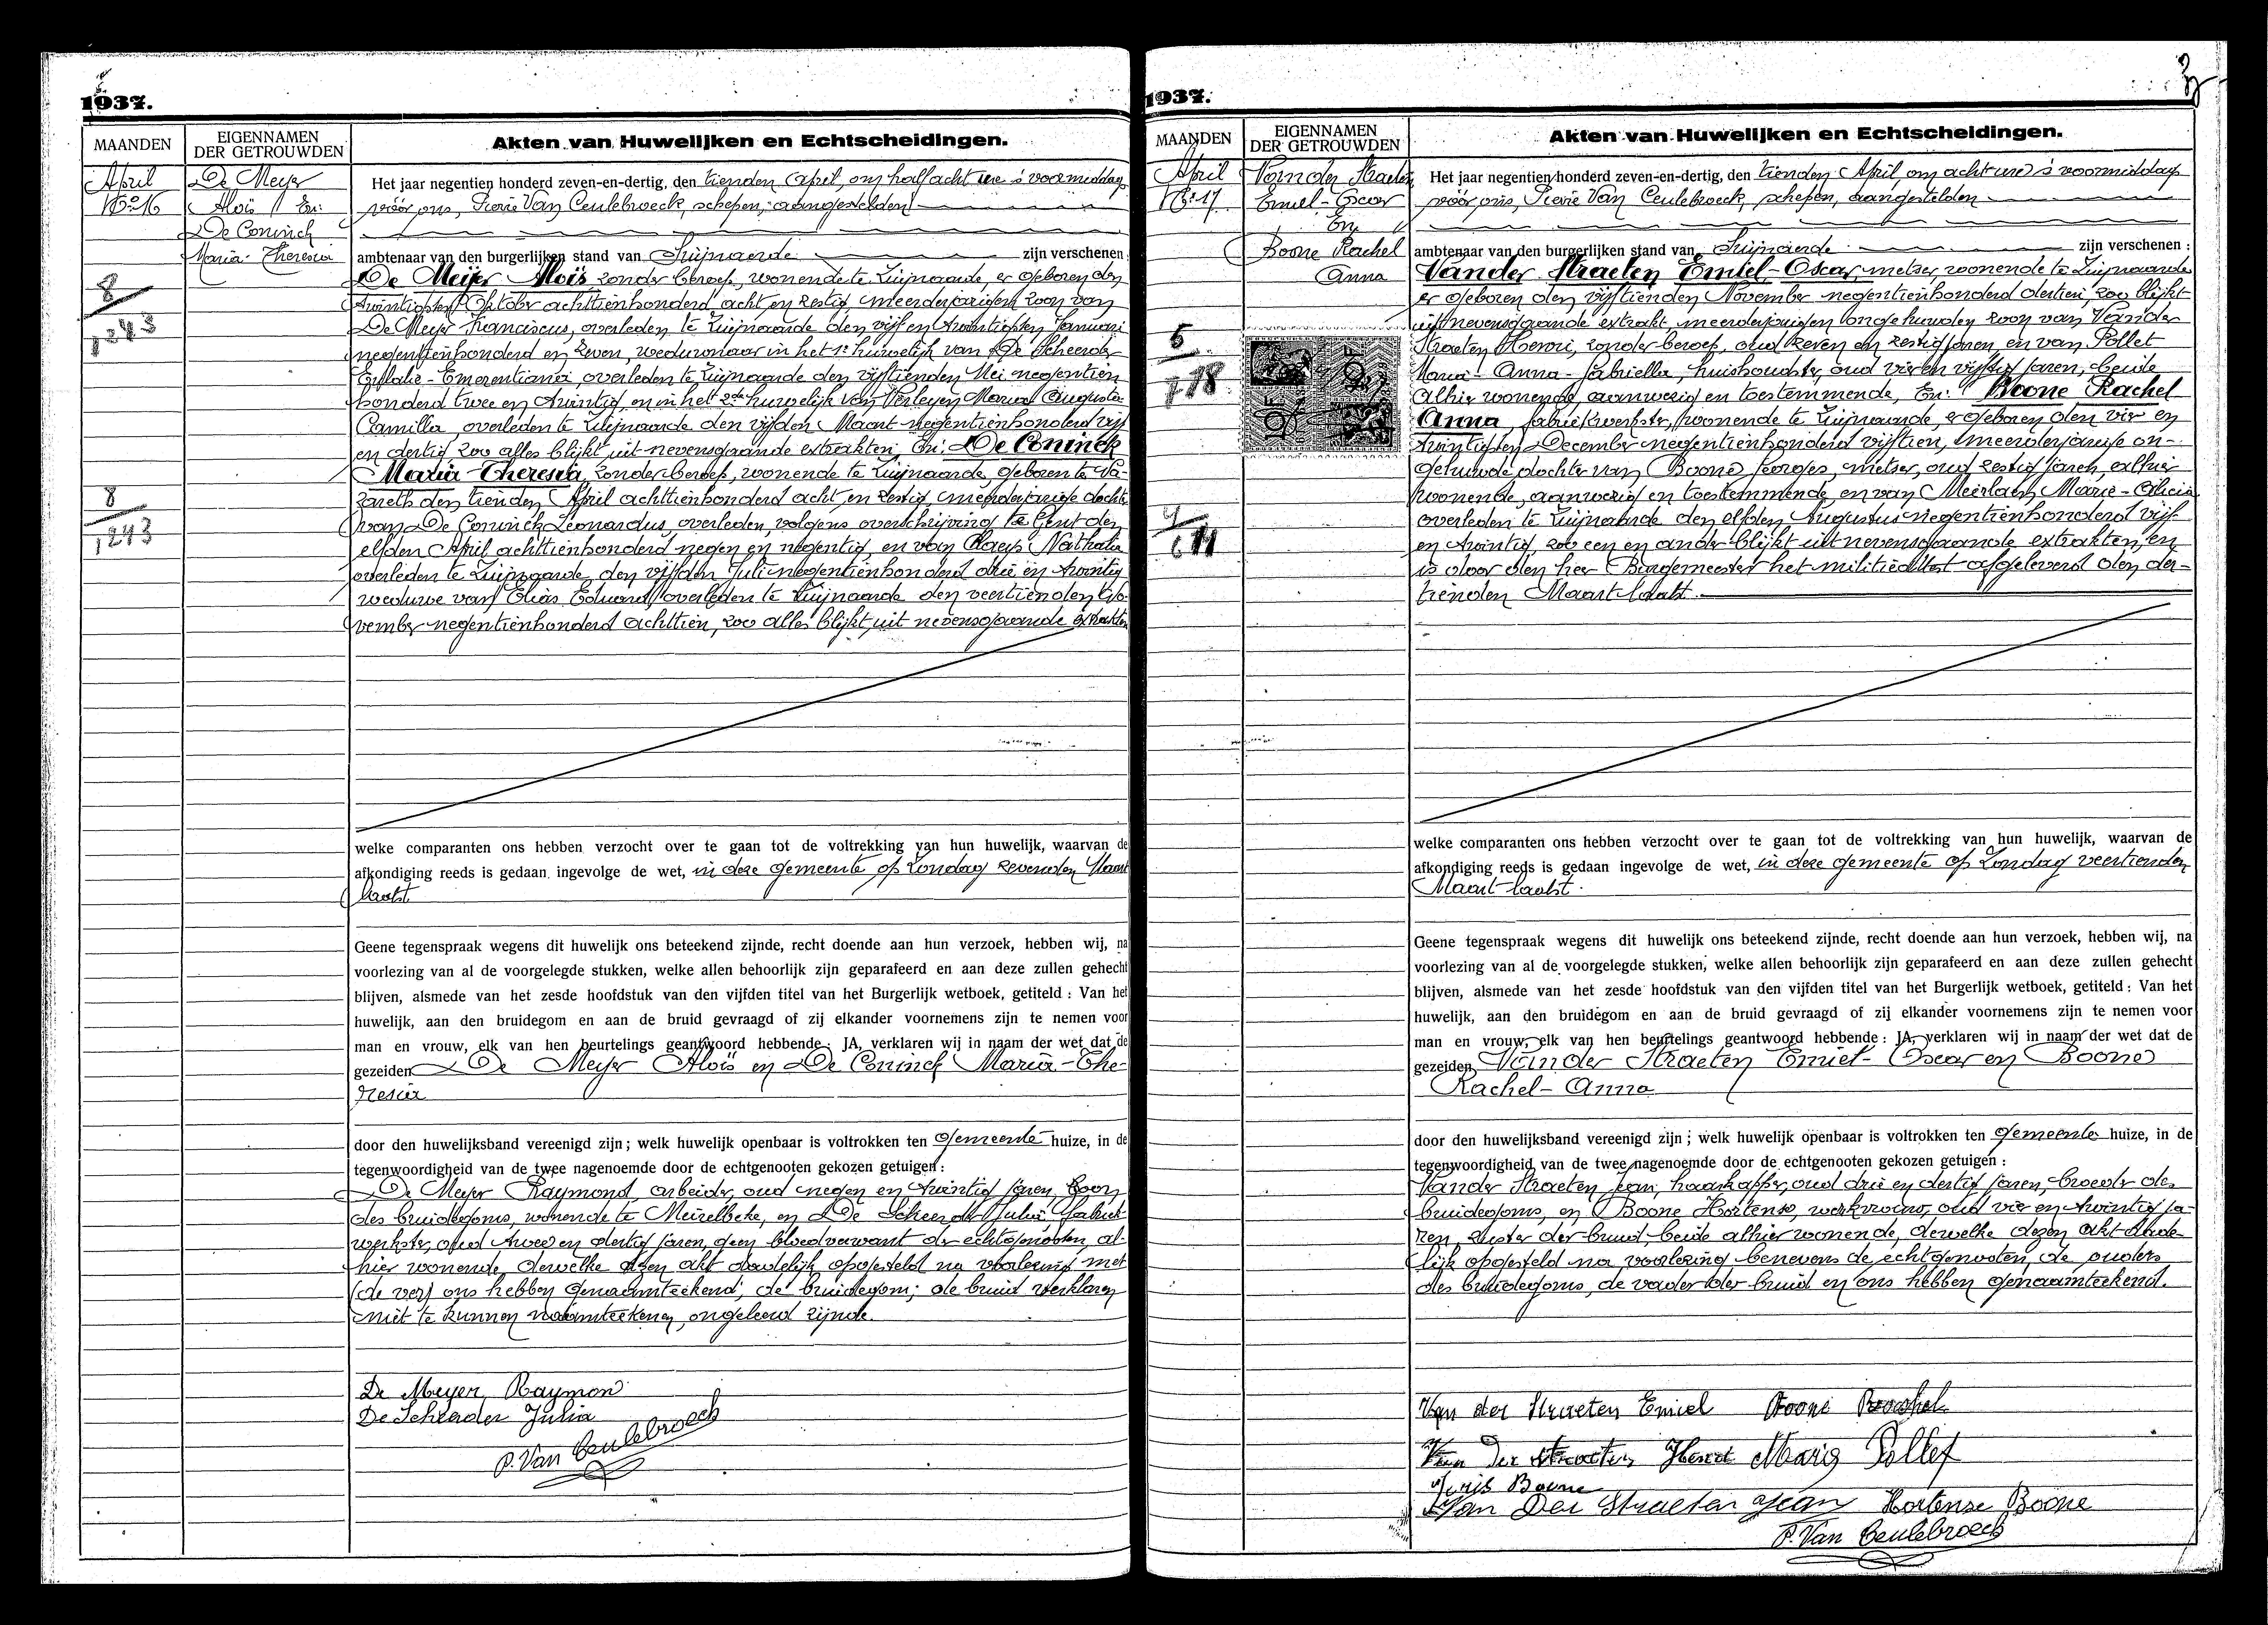 1937.
MAANDEN
EIGENNAMEN
DER GETROUWDEN
Akten van Huwelijken en Echtscheidingen.
April
No 16
De Meyer
Aloïs En:
De Coninck
Maria-Theresia
8
1243
8
1243
Het jaar negentien honderd zeven-en-dertig, den tienden April, om half acht ure 's voormiddags
vóór ons, Pierre Van Ceulebroeck, schepen, aangestelden
ambtenaar van den burgerlijken stand van Zwijnaarde zijn verschenen
De Meijer Aloïs, zonder beroep, wonende te Zwijnaarde, er geboren den
twintigsten Oktober achttienhonderd acht en zestig, meerderjarigen zoon van
De Meyer Franciscus, overleden te Zwijnaarde den vijf en twintigsten Januari
negentienhonderd en zeven, weduwnaar in het 1e huwelijk van De Scheerder
Eulalie-Emerentiana, overleden te Zwijnaarde den vijftienden Mei negentien
honderd twee en twintig, en in het 2de huwelijk van Verleyen Maria Augusta
Camilla, overleden te Zwijnaarde den vijfden Maart negentienhonderd vijf
en dertig, zoo alles blijkt uit nevensgaande extrakten, En: De Coninck
Maria-Theresia, zonder beroep, wonende te Zwijnaarde, geboren te Na-
zareth den tienden April achttienhonderd acht en zestig, meerderjarige dochter
van De Coninck Leonardus, overleden, volgens overschrijving te Gent den
elfden April achttienhonderd negen en negentig, en van Claeys Nathalia
overleden te Zwijnaarde, den vijfden Juli negentienhonderd drie en twintig
weduwe van Elias Eduard, overleden te Zwijnaarde den veertienden No-
vember negentienhonderd achttien, zoo alles blijkt uit nevensgaande extrakten
welke comparanten ons hebben verzocht over te gaan tot de voltrekking van hun huwelijk, waarvan de
afkondiging reeds is gedaan ingevolge de wet, in deze gemeente op Zondag zevenden Maart
laatst
Geene tegenspraak wegens dit huwelijk ons beteekend zijnde, recht doende aan hun verzoek, hebben wij, na
voorlezing van al de voorgelegde stukken, welke allen behoorlijk zijn geparafeerd en aan deze zullen gehecht
blijven, alsmede van het zesde hoofdstuk van den vijfden titel van het Burgerlijk wetboek, getiteld : Van het
huwelijk, aan den bruidegom en aan de bruid gevraagd of zij elkander voornemens zijn te nemen voor
man en vrouw, elk van hen beurtelings geantwoord hebbende : JA, verklaren wij in naam der wet dat de
gezeiden De Meyer Aloïs en De Coninck Maria-The-
resia
door den huwelijksband vereenigd zijn ; welk huwelijk openbaar is voltrokken ten gemeente huize, in de
tegenwoordigheid van de twee nagenoemde door de echtgenooten gekozen getuigen :
De Meyer Raymond, arbeider, oud negen en twintig jaren, zoon
des bruidegoms, wonende te Meirelbeke, en De Scheerder Julia, fabriek-
werkster, oud twee en dertig jaren, geen bloedverwant der echtgenooten, al-
hier wonende, dewelke dezen akt dadelijk opgesteld na voorlezing met
ons hebben genaamteekend; de bruidegom; de bruid verklaren
niet te kunnen naamteekenen, ongeleerd zijnde.
De Meyer Raymon
De Scheerder Julia
P. Van Ceulebroeck
1937.
MAANDEN
EIGENNAMEN
DER GETROUWDEN
Akten van Huwelijken en Echtscheidingen.
April
No 17
Van der Straeten
Emiel-Oscar
En
Boone Rachel
Anna
10F
10F
Het jaar negentien honderd zeven-en-dertig, den tienden April, om acht ure 's voormiddags
vóór ons, Pierre Van Ceulebroeck, schepen, aangestelden
ambtenaar van den burgerlijken stand van Zwijnaarde zijn verschenen :
Vander Straeten Emiel-Oscar, metser, wonende te Zwijnaarde
er geboren den vijftienden November negentienhonderd dertien, zoo blijkt
uit nevensgaande extrakt, meerderjarigen ongehuwden zoon van Vander
Straeten Henri, zonder beroep, oud zeven en zestig jaren, en van Pollet
Maria-Anna-Gabriella, huishoudster, oud vier en vijftig jaren, beide
alhier wonende, aanwezig en toestemmende, En: Boone Rachel
Anna, fabriekwerkster, wonende te Zwijnaarde, er geboren den vier en
twintigsten December negentienhonderd vijftien, meerderjarige on-
gehuwde dochter van Boone Georges, metser, oud zestig jaren, alhier
wonende, aanwezig en toestemmende, en van Meirlaen Marie-Alicia
overleden te Zwijnaarde den elfden Augustus negentienhonderd vijf
en twintig, zoo een en ander blijkt uit nevensgaande extrakten, en
is door den heer Burgemeester het militieattest afgeleverd den der-
tienden Maart laatst.
welke comparanten ons hebben verzocht over te gaan tot de voltrekking van hun huwelijk, waarvan de
afkondiging reeds is gedaan ingevolge de wet, in deze gemeente op Zondag veertienden
Maart laatst.
Geene tegenspraak wegens dit huwelijk ons beteekend zijnde, recht doende aan hun verzoek, hebben wij, na
voorlezing van al de voorgelegde stukken, welke allen behoorlijk zijn geparafeerd en aan deze zullen gehecht
blijven, alsmede van het zesde hoofdstuk van den vijfden titel van het Burgerlijk wetboek, getiteld : Van het
huwelijk, aan den bruidegom en aan de bruid gevraagd of zij elkander voornemens zijn te nemen voor
man en vrouw, elk van hen beurtelings geantwoord hebbende : JA, verklaren wij in naam der wet dat de
gezeiden Van der Straeten Emiel-Oscar en Boone
Rachel-Anna
door den huwelijksband vereenigd zijn ; welk huwelijk openbaar is voltrokken ten gemeente huize, in de
tegenwoordigheid van de twee nagenoemde door de echtgenooten gekozen getuigen :
Vander Straeten Jean, haarkapper, oud drie en dertig jaren, broeder des
bruidegoms, en Boone Hortense, werkvrouw, oud vier en twintig ja-
ren, zuster der bruid, beide alhier wonende, dewelke dezen akt dade-
lijk opgesteld na voorlezing benevens de echtgenooten, de ouders
des bruidegoms, de vader der bruid en ons hebben genaamteekend.
Van der Straeten Emiel Boone Rachel
Van Der Straeten Henri Maria Pollet
Joris Boone
Van Der Straeten Jean Hortense Boone
P. Van Ceulebroeck